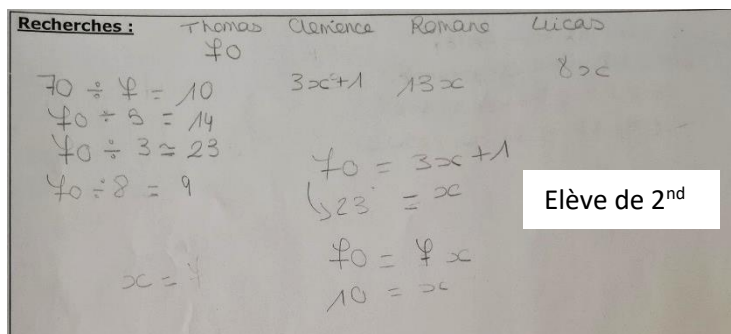 Recherches : Thomas Clemence Romane Lucas
70
3x+1 13x 8x
70 ÷ 7 = 10
70 ÷ 5 = 14
70 ÷ 3 ≈ 23
70 ÷ 8 = 9
70 = 3x+1
↳ 23 = x
70 = 7x
10 = x
x = 7
Elève de 2nd